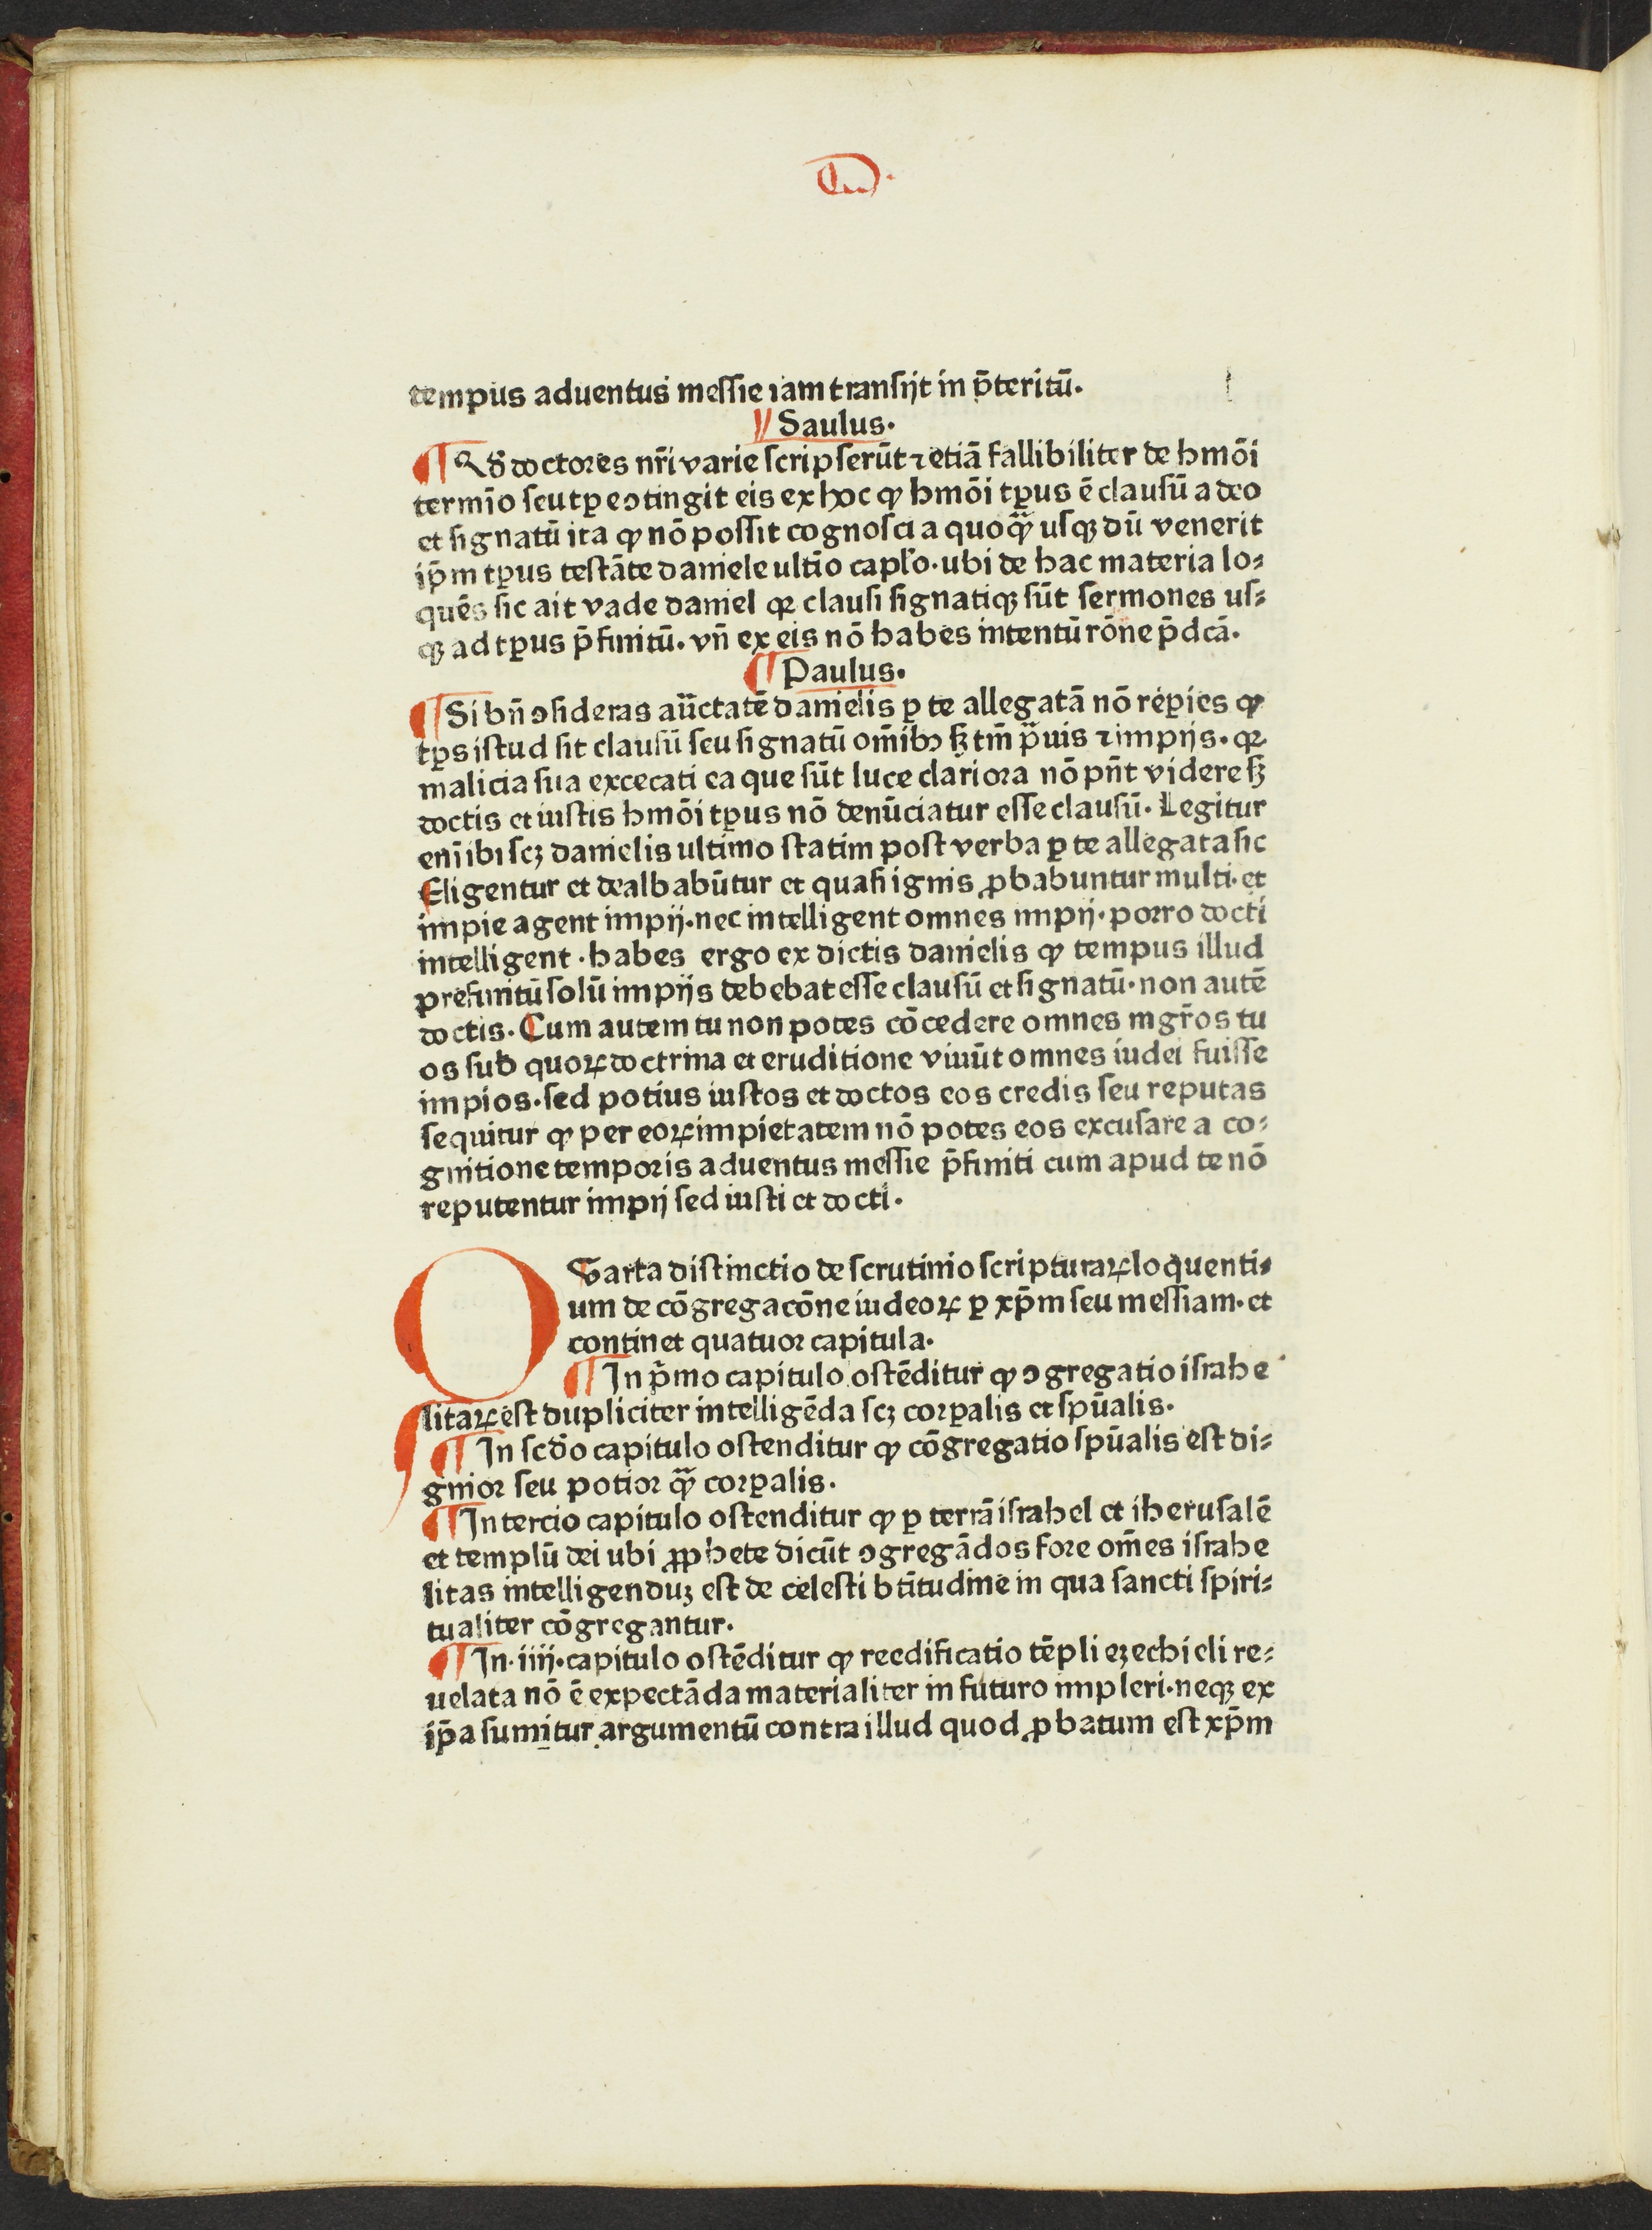 tempus aduentus messie iam transijt in p̄teritū.
Saulus.
Qď doctores nr̄i varie scripserūt ⁊ etiā fallibiliter de hmōi
termīo seu tꝑe ↄtingit eis ex hoc ꝙ hmōi tꝑus ē clausū a deo
et signatū ita ꝙ nō possit cognosci a quoꝙ̄ usqꝫ dū venerit
ip̄m tꝑus testāte daniele ultīo capl'o. ubi de hac materia lo⸗
quēs sic ait vade daniel qꝛ clausi signatiqꝫ sūt sermones us⸗
qꝫ ad tꝑus p̄finitū. vn̄ ex eis nō habes intentū rōne p̄dcā.
Paulus.
Si bn̄ ↄsideras auctatē danielis ꝑ te allegatā nō reꝑies ꝙ
tꝑs istud sit clausū seu signatū om̄ibꝰ sꝫ tm̄ prauis ⁊ impijs. qꝛ
malicia sua excecati ea que sūt luce clariora nō pn̄t videre sꝫ
doctis et iustis hmōi tꝑus nō denūciatur esse clausū. Legitur
enī ibi scꝫ danielis ultimo statim post verba ꝑ te allegata sic
Eligentur et dealbabūtur et quasi ignis ꝓbabuntur multi. et
impie agent impij. nec intelligent omnes impij. porro docti
intelligent. habes ergo ex dictis danielis ꝙ tempus illud
prefinitū solū impijs debebat esse clausū et signatū. non autē
doctis. Cum autem tu non potes cōcedere omnes mgr̄os tu
os sub quoꝝ doctrina et eruditione viuūt omnes iudei fuisse
impios. sed potius iustos et doctos eos credis seu reputas
sequitur ꝙ per eoꝝ impietatem nō potes eos excusare a co⸗
gnitione temporis aduentus messie p̄finiti cum apud te nō
reputentur impij sed iusti et docti.
QVarta distinctio de scrutinio scripturaꝝ loquenti⸗
um de cōgregacōne iudeoꝝ ꝑ xp̄m seu messiam. et
continet quatuor capitula.
In p̄mo capitulo ostēditur ꝙ ↄgregatio israhe
litaꝝ est dupliciter intelligēda scꝫ corꝑalis et spūalis.
In scďo capitulo ostenditur ꝙ cōgregatio spūalis est di⸗
gnior seu potior ꝙ̄ corꝑalis.
In tercio capitulo ostenditur ꝙ ꝑ terrā israhel et iherusalē
et templū dei ubi ꝓphete dicūt ↄgregādos fore om̄es israhe
litas intelligenduꝫ est de celesti btītudine in qua sancti spiri⸗
tualiter cōgregantur.
In. iiij. capitulo ostēditur ꝙ reedificatio tēpli ezechieli re⸗
uelata nō ē expectāda materialiter in futuro impleri. neqꝫ ex
ip̄a sumitur argumentū contra illud quod ꝓbatum est xp̄m